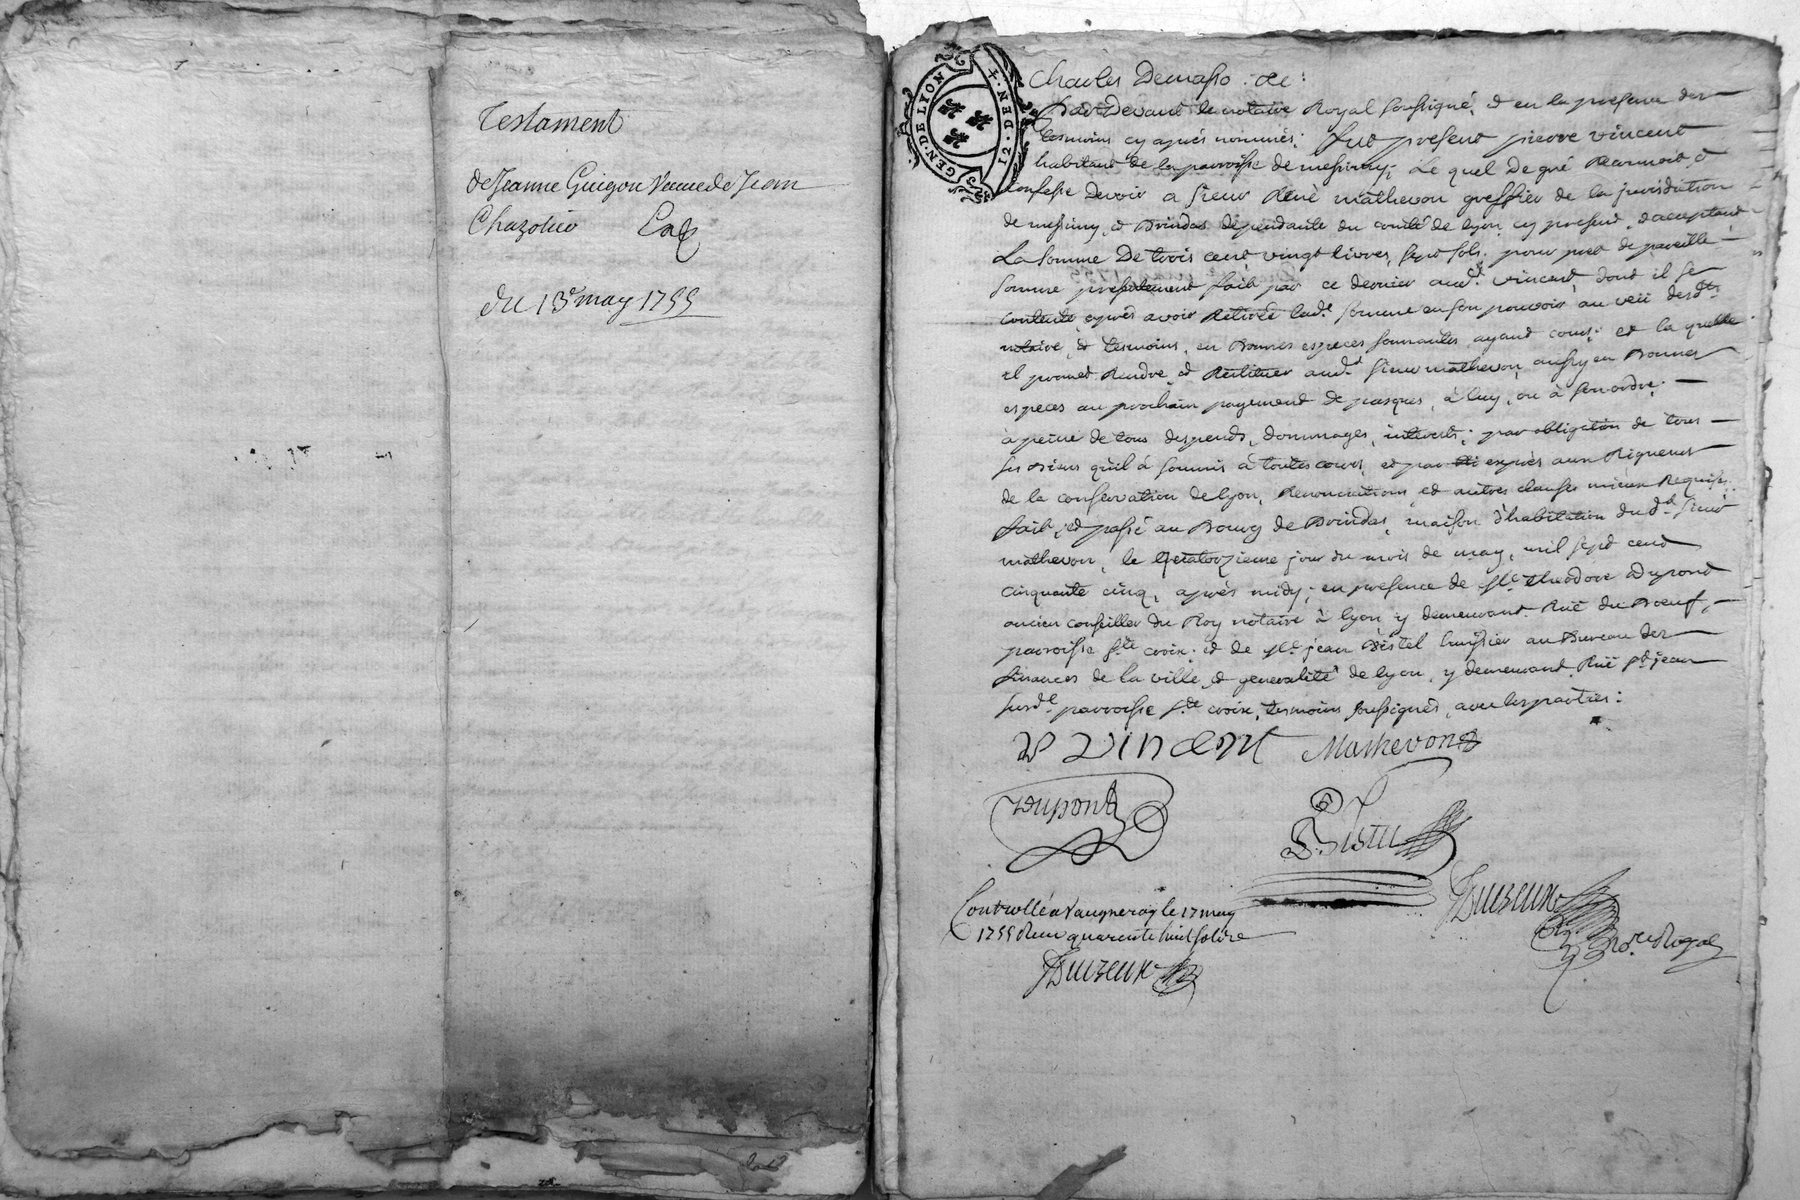 Testament
de Jeanne Guigou Veuve de Jean
Chazotier
du 13e may 1755
GEN·DE·LYON
12·DEN·
Charles Demasso &c:
Pardevant le notaire Royal soussigné, et en la presence des
tesmoins cy aprés nommés: fut present pierre vincent
habitant de la parroisse de messimy; Le quel De gré Reconnoit, et
Confesse Devoir a sieur René mathevon greffier de la jurisdiction
de messimy, et Brindas dépendante du comté de lyon, cy present, et acceptant
La somme De trois cent vingt livres, sept sols, pour pret de pareille
somme presentement fait par ce dernier aud. vincent, dont il se
contente aprés avoir Retirée lad.e somme en son pouvoir au veü desd.ts
notaire, et tesmoins, en Bonnes especes sonnantes ayant cours; et la quelle
il promet Rendre, et Restituer aud.t sieur mathevon, aussy en Bonnes
especes au prochain payement de pasques, à luy, ou à son ordre;
à peine de tous despends, dommages, interests; par obligation de tous
ses Biens qu'il à soumis à toutes cours, et par exprés aux Rigueurs
de la conservation de lyon, Renonciations, et autres clauses mieux Requises.
fait, et passé au Bourg de Brindas, maison d'habitation dud.t sieur
mathevon, le Quatorzieme jour du mois de may, mil sept cent
cinquante cinq, aprés midy; en presence de Me. theodore Dupont
ancien conseiller du Roy notaire à lyon y demeurant Ruë du Boeuf,
parroisse ste croix; et de Me. jean Bistel huissier au Bureau des
finances de la ville, et generalité de lyon, y demeurant Ruë st jean
susd.e parroisse s.te croix, tesmoins soussignés, avec les parties:
P Vincent Mathevon
Dupont
Bistel
Controllé a Vaugneray le 17 may
1755 Reçu quarente huit sols
No.re Royal